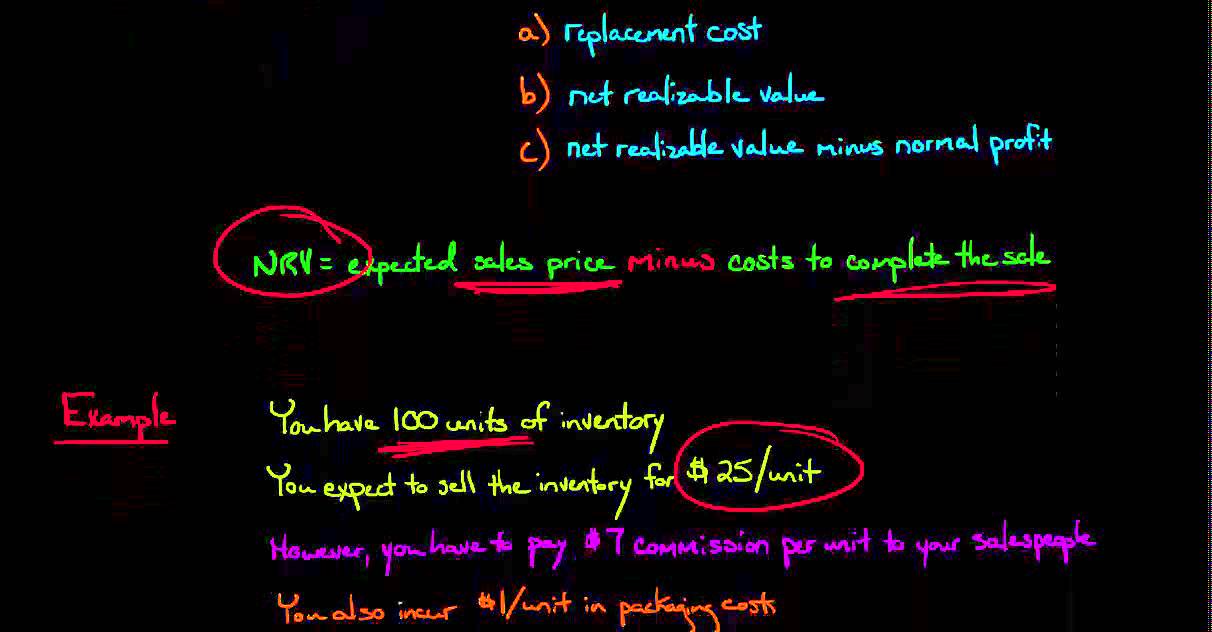 a) replacement cost
b) net realizable value
c) net realizable value minus normal profit
NRV = expected sales price minus costs to complete the sale
Example
You have 100 units of inventory
You expect to sell the inventory for $25/unit
However, you have to pay $7 commission per unit to your salespeople
You also incur $1/unit in packaging costs